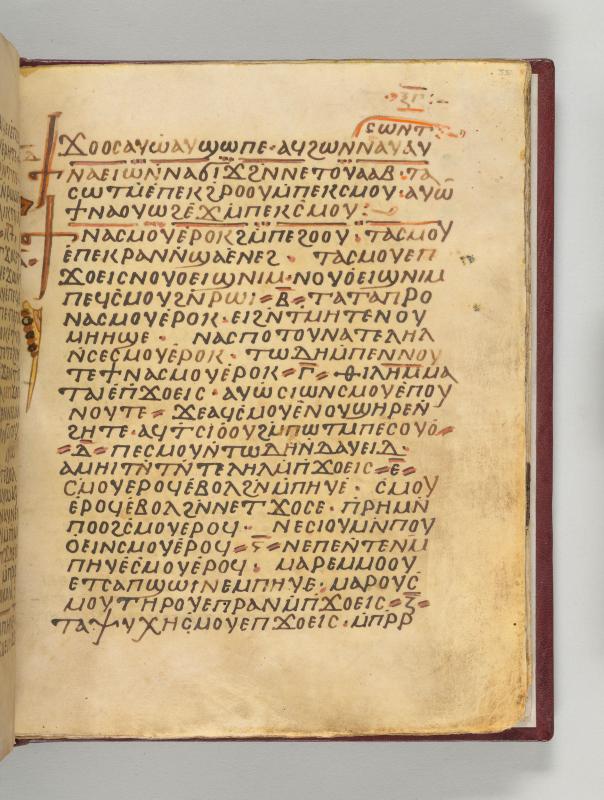 ⲝⲅ
ⲥⲱⲛⲧ
ϫⲟⲟⲥⲁⲩⲱⲁⲩϣⲱⲡⲉ·ⲁϥϩⲱⲛⲛⲁⲩⲁⲩ
ⲛⲁⲉⲓⲱⲛⲛⲁϭⲓϫϩⲛⲛⲉⲧⲟⲩⲁⲁⲃ·ⲧⲁ
ⲥⲱⲧⲙⲉⲡⲉⲕϩⲣⲟⲟⲩⲙⲡⲉⲕⲥⲙⲟⲩ·ⲁⲩⲱ
ϯⲛⲁⲟⲩⲱϩⲉϫⲙⲡⲉⲕⲥⲙⲟⲩ:
ϯⲛⲁⲥⲙⲟⲩⲉⲣⲟⲕϩⲙⲡⲉϩⲟⲟⲩ·ⲧⲁⲥⲙⲟⲩ
ⲉⲡⲉⲕⲣⲁⲛⲛϣⲁⲉⲛⲉϩ· ⲧⲁⲥⲙⲟⲩⲉⲡ
ϫⲟⲉⲓⲥⲛⲟⲩⲟⲉⲓϣⲛⲓⲙ·ⲛⲟⲩⲟⲉⲓϣⲛⲓⲙ
ⲡⲉϥⲥⲙⲟⲩϩⲛⲣⲱⲓ=ⲃ=ⲧⲁⲧⲁⲡⲣⲟ
ⲛⲁⲥⲙⲟⲩⲉⲣⲟⲕ·ⲉⲓϩⲛⲧⲙⲏⲧⲉⲛⲟⲩ
ⲙⲏⲏϣⲉ· ⲛⲁⲥⲡⲟⲧⲟⲩⲛⲁⲧⲉⲗⲏⲗ
ⲛⲥⲉⲥⲙⲟⲩⲉⲣⲟⲕ· ⲧⲱⲇⲏⲙⲡⲉⲛⲛⲟⲩ
ⲧⲉϯⲛⲁⲥⲙⲟⲩⲉⲣⲟⲕ=ⲅ=ⲑⲓⲗⲏⲙⲙⲁ
ⲧⲁⲓⲉⲡϫⲟⲉⲓⲥ·ⲁⲩⲱⲥⲓⲱⲛⲥⲙⲟⲩⲉⲡⲟⲩ
ⲛⲟⲩⲧⲉ=ϫⲉⲁϥⲥⲙⲟⲩⲉⲛⲟⲩϣⲏⲣⲉⲛ
ϩⲏⲧⲉ·ⲁϥϯⲥⲓⲟⲟⲩϩⲙⲡⲱⲧⲙⲡⲉⲥⲟⲩⲟ=
=ⲇ=ⲡⲉⲥⲙⲟⲩⲛⲧⲱⲇⲏⲛⲇⲁⲩⲉⲓⲇ·
ⲁⲙⲏⲓⲧⲛⲧⲛⲧⲉⲗⲏⲗⲙⲡϫⲟⲉⲓⲥ=ⲉ=
ⲥⲙⲟⲩⲉⲣⲟϥⲉⲃⲟⲗϩⲛⲙⲡⲏⲩⲉ· ⲥⲙⲟⲩ
ⲉⲣⲟϥⲉⲃⲟⲗϩⲛⲛⲉⲧϫⲟⲥⲉ·ⲡⲣⲏⲙⲛ
ⲡⲟⲟϩⲥⲙⲟⲩⲉⲣⲟϥ· ⲛⲉⲥⲓⲟⲩⲙⲛⲡⲟⲩ
ⲟⲉⲓⲛⲥⲙⲟⲩⲉⲣⲟϥ=ⲋ=ⲛⲉⲡⲉⲛⲧⲉⲛⲙ
ⲡⲏⲩⲉⲥⲙⲟⲩⲉⲣⲟϥ· ⲙⲁⲣⲉⲙⲙⲟⲟⲩ
ⲉⲧⲥⲁⲡϣⲱⲓⲛⲉⲙⲡⲏⲩⲉ·ⲙⲁⲣⲟⲩⲥ
ⲙⲟⲩⲧⲏⲣⲟⲩⲉⲡⲣⲁⲛⲙⲡϫⲟⲉⲓⲥ=ⲍ=
ⲧⲁⲯⲩⲭⲏⲥⲙⲟⲩⲉⲡϫⲟⲉⲓⲥ·ⲙⲡⲣⲣ